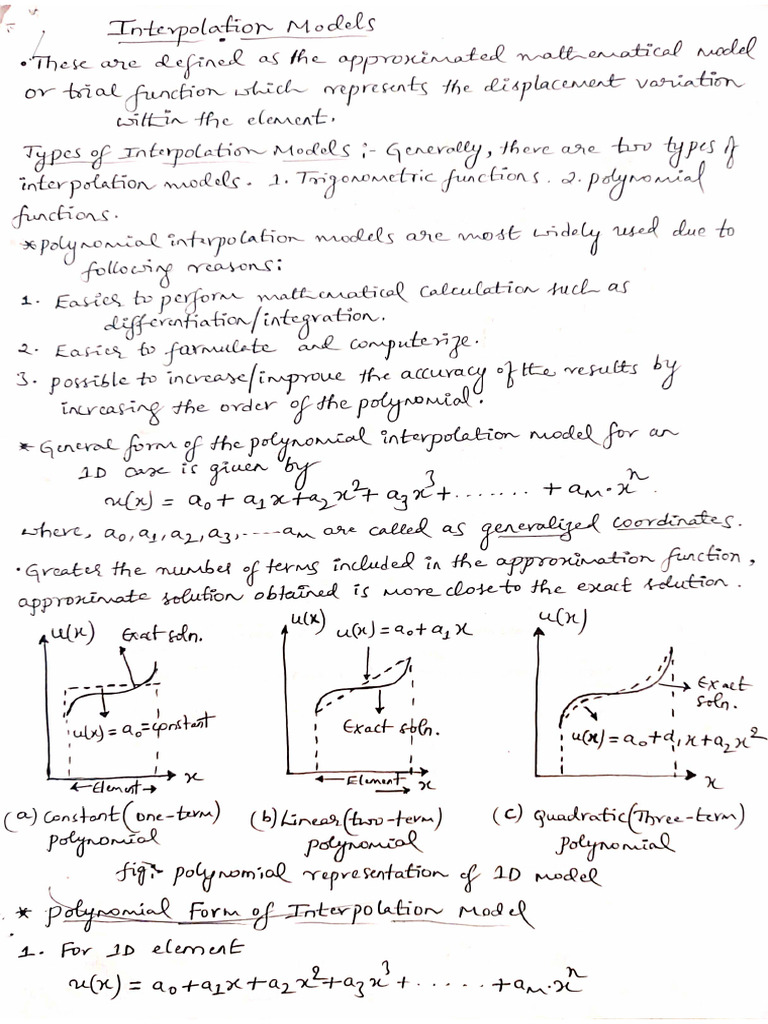 Interpolation Models
• These are defined as the approximated mathematical model
or trial function which represents the displacement variation
within the element.
Types of Interpolation Models :- Generally, there are two types of
interpolation models. 1. Trigonometric functions. 2. polynomial
functions.
* polynomial interpolation models are most widely used due to
following reasons:
1. Easier to perform mathematical calculation such as
differentiation/integration.
2. Easier to farmulate and computerize.
3. possible to increase/improve the accuracy of the results by
increasing the order of the polynomial.
* General form of the polynomial interpolation model for an
1D case is given by
u(x) = a₀ + a₁x + a₂x² + a₃x³ + ....... + aₘ.xⁿ.
where, a₀, a₁, a₂, a₃, ----aₘ are called as generalized coordinates.
• Greater the number of terms included in the approximation function,
approximate solution obtained is more close to the exact solution.
u(x) Exat soln.
u(x) = a₀ = constant
←Element→ x
u(x) u(x) = a₀ + a₁x
Exact soln.
←Element→ x
u(x)
Exact
soln.
u(x) = a₀ + a₁x + a₂x²
x
(a) Constant (one-term) (b) Linear (two-term) (c) Quadratic (Three-term)
polynomial polynomial polynomial
fig:- polynomial representation of 1D model
* Polynomial Form of Interpolation Model
1. For 1D element
u(x) = a₀ + a₁x + a₂x² + a₃x³ + ...... + aₘ.xⁿ